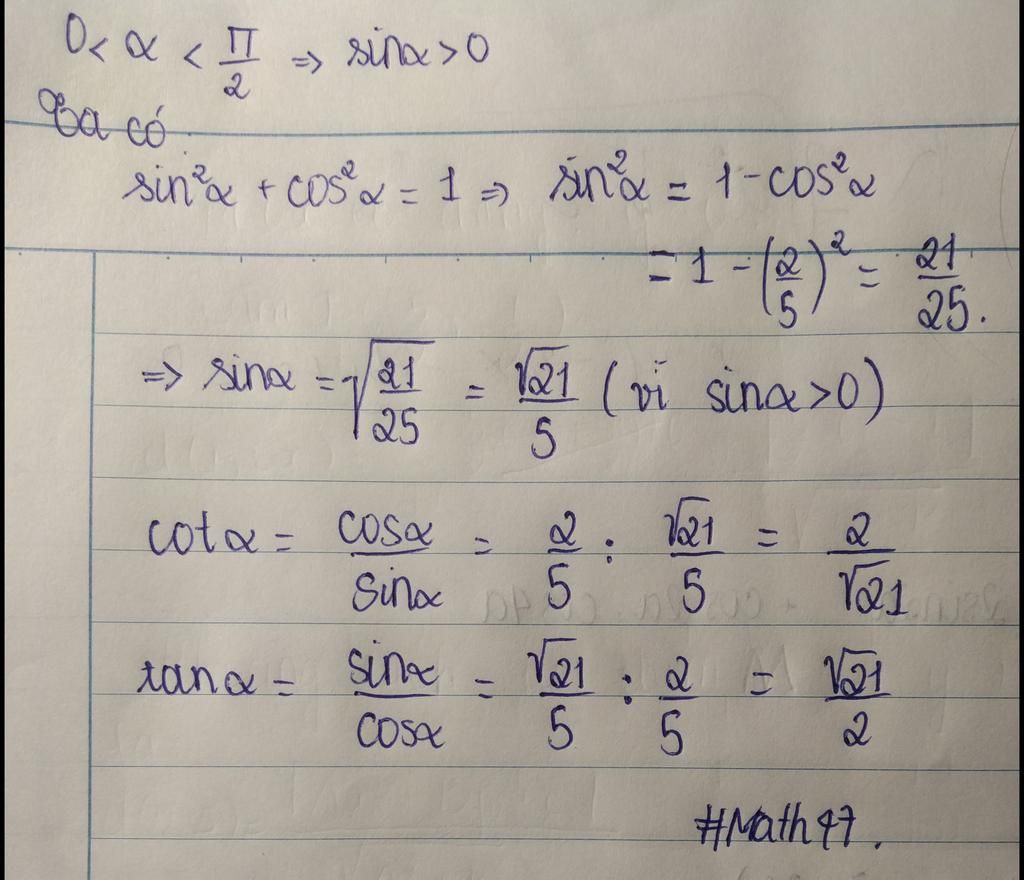 0 < α < π/2 ⇒ sinα > 0
Ta có
sin²α + cos²α = 1 ⇒ sin²α = 1 - cos²α
= 1 - (2/5)² = 21/25.
⇒ sinα = √(21/25) = √21/5 (vì sinα > 0)
cotα = cosα/sinα = 2/5 : √21/5 = 2/√21
tanα = sinα/cosα = √21/5 : 2/5 = √21/2
#Math47.